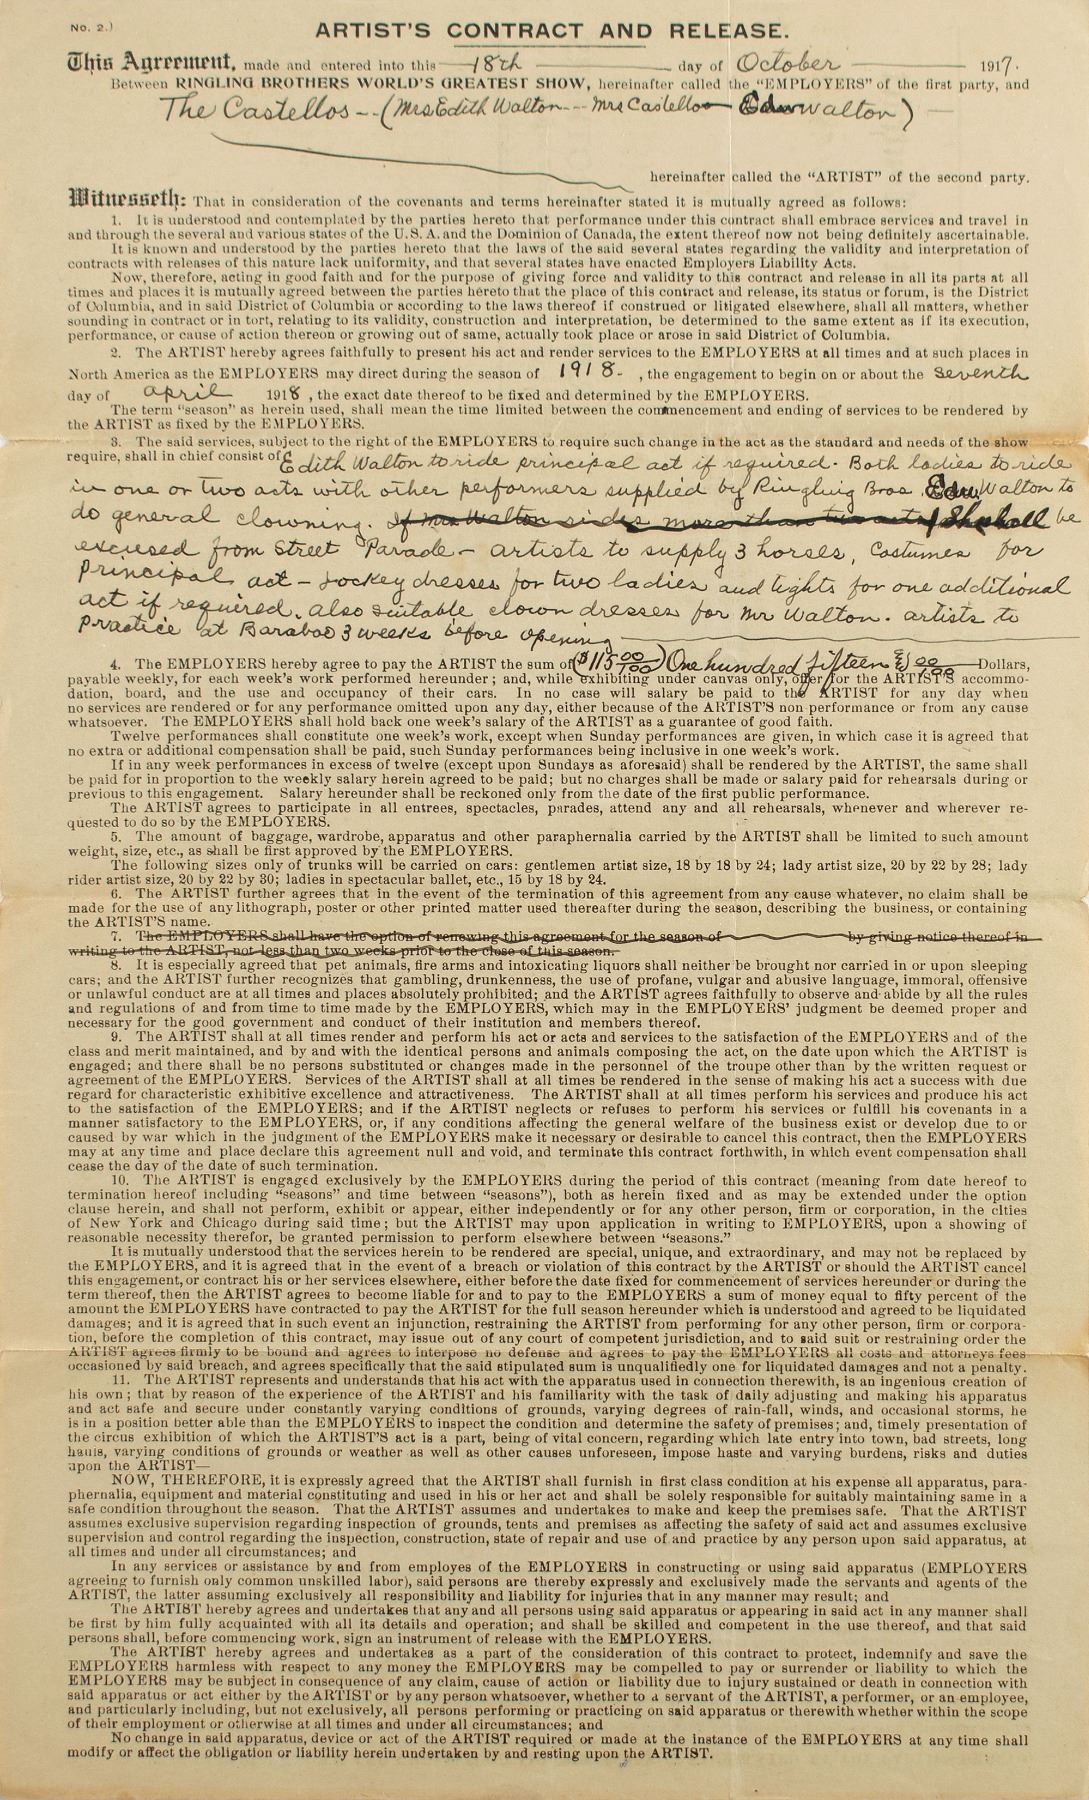 No. 2.)
ARTIST'S CONTRACT AND RELEASE.
This Agreement, made and entered into this 18th day of October 1917.
Between RINGLING BROTHERS WORLD'S GREATEST SHOW, hereinafter called the "EMPLOYERS" of the first party, and
The Castellos -- (Mrs Edith Walton --- Mrs Castello Edw Walton)
hereinafter called the "ARTIST" of the second party.
Witnesseth: That in consideration of the covenants and terms hereinafter stated it is mutually agreed as follows:
1. It is understood and contemplated by the parties hereto that performance under this contract shall embrace services and travel in
and through the several and various states of the U. S. A. and the Dominion of Canada, the extent thereof now not being definitely ascertainable.
It is known and understood by the parties hereto that the laws of the said several states regarding the validity and interpretation of
contracts with releases of this nature lack uniformity, and that several states have enacted Employers Liability Acts.
Now, therefore, acting in good faith and for the purpose of giving force and validity to this contract and release in all its parts at all
times and places it is mutually agreed between the parties hereto that the place of this contract and release, its status or forum, is the District
of Columbia, and in said District of Columbia or according to the laws thereof if construed or litigated elsewhere, shall all matters, whether
sounding in contract or in tort, relating to its validity, construction and interpretation, be determined to the same extent as if its execution,
performance, or cause of action thereon or growing out of same, actually took place or arose in said District of Columbia.
2. The ARTIST hereby agrees faithfully to present his act and render services to the EMPLOYERS at all times and at such places in
North America as the EMPLOYERS may direct during the season of 1918- , the engagement to begin on or about the seventh
day of april 1918 , the exact date thereof to be fixed and determined by the EMPLOYERS.
The term "season" as herein used, shall mean the time limited between the commencement and ending of services to be rendered by
the ARTIST as fixed by the EMPLOYERS.
3. The said services, subject to the right of the EMPLOYERS to require such change in the act as the standard and needs of the show
require, shall in chief consist of Edith Walton to ride principal act if required. Both ladies to ride
in one or two acts with other performers supplied by Ringling Bros. Edw. Walton to
do general clowning. If Mrs Walton rides more than two acts she shall be
excused from Street Parade - artists to supply 3 horses, Costumes for
Principal act - Jockey dresses for two ladies and tights for one additional
act if required. also suitable clown dresses for Mr Walton. artists to
Practice at Baraboo 3 weeks before opening
4. The EMPLOYERS hereby agree to pay the ARTIST the sum of ($115 00/100) One hundred fifteen & 00/100 Dollars,
payable weekly, for each week's work performed hereunder; and, while exhibiting under canvas only, offer for the ARTIST'S accommo-
dation, board, and the use and occupancy of their cars. In no case will salary be paid to the ARTIST for any day when
no services are rendered or for any performance omitted upon any day, either because of the ARTIST'S non-performance or from any cause
whatsoever. The EMPLOYERS shall hold back one week's salary of the ARTIST as a guarantee of good faith.
Twelve performances shall constitute one week's work, except when Sunday performances are given, in which case it is agreed that
no extra or additional compensation shall be paid, such Sunday performances being inclusive in one week's work.
If in any week performances in excess of twelve (except upon Sundays as aforesaid) shall be rendered by the ARTIST, the same shall
be paid for in proportion to the weekly salary herein agreed to be paid; but no charges shall be made or salary paid for rehearsals during or
previous to this engagement. Salary hereunder shall be reckoned only from the date of the first public performance.
The ARTIST agrees to participate in all entrees, spectacles, parades, attend any and all rehearsals, whenever and wherever re-
quested to do so by the EMPLOYERS.
5. The amount of baggage, wardrobe, apparatus and other paraphernalia carried by the ARTIST shall be limited to such amount
weight, size, etc., as shall be first approved by the EMPLOYERS.
The following sizes only of trunks will be carried on cars: gentlemen artist size, 18 by 18 by 24; lady artist size, 20 by 22 by 28; lady
rider artist size, 20 by 22 by 30; ladies in spectacular ballet, etc., 15 by 18 by 24.
6. The ARTIST further agrees that in the event of the termination of this agreement from any cause whatever, no claim shall be
made for the use of any lithograph, poster or other printed matter used thereafter during the season, describing the business, or containing
the ARTIST'S name.
7. The EMPLOYERS shall have the option of renewing this agreement for the season of by giving notice thereof in
writing to the ARTIST, not less than two weeks prior to the close of this season.
8. It is especially agreed that pet animals, fire arms and intoxicating liquors shall neither be brought nor carried in or upon sleeping
cars; and the ARTIST further recognizes that gambling, drunkenness, the use of profane, vulgar and abusive language, immoral, offensive
or unlawful conduct are at all times and places absolutely prohibited; and the ARTIST agrees faithfully to observe and abide by all the rules
and regulations of and from time to time made by the EMPLOYERS, which may in the EMPLOYERS' judgment be deemed proper and
necessary for the good government and conduct of their institution and members thereof.
9. The ARTIST shall at all times render and perform his act or acts and services to the satisfaction of the EMPLOYERS and of the
class and merit maintained, and by and with the identical persons and animals composing the act, on the date upon which the ARTIST is
engaged; and there shall be no persons substituted or changes made in the personnel of the troupe other than by the written request or
agreement of the EMPLOYERS. Services of the ARTIST shall at all times be rendered in the sense of making his act a success with due
regard for characteristic exhibitive excellence and attractiveness. The ARTIST shall at all times perform his services and produce his act
to the satisfaction of the EMPLOYERS; and if the ARTIST neglects or refuses to perform his services or fulfill his covenants in a
manner satisfactory to the EMPLOYERS, or, if any conditions affecting the general welfare of the business exist or develop due to or
caused by war which in the judgment of the EMPLOYERS make it necessary or desirable to cancel this contract, then the EMPLOYERS
may at any time and place declare this agreement null and void, and terminate this contract forthwith, in which event compensation shall
cease the day of the date of such termination.
10. The ARTIST is engaged exclusively by the EMPLOYERS during the period of this contract (meaning from date hereof to
termination hereof including "seasons" and time between "seasons"), both as herein fixed and as may be extended under the option
clause herein, and shall not perform, exhibit or appear, either independently or for any other person, firm or corporation, in the cities
of New York and Chicago during said time; but the ARTIST may upon application in writing to EMPLOYERS, upon a showing of
reasonable necessity therefor, be granted permission to perform elsewhere between "seasons."
It is mutually understood that the services herein to be rendered are special, unique, and extraordinary, and may not be replaced by
the EMPLOYERS, and it is agreed that in the event of a breach or violation of this contract by the ARTIST or should the ARTIST cancel
this engagement, or contract his or her services elsewhere, either before the date fixed for commencement of services hereunder or during the
term thereof, then the ARTIST agrees to become liable for and to pay to the EMPLOYERS a sum of money equal to fifty percent of the
amount the EMPLOYERS have contracted to pay the ARTIST for the full season hereunder which is understood and agreed to be liquidated
damages; and it is agreed that in such event an injunction, restraining the ARTIST from performing for any other person, firm or corpora-
tion, before the completion of this contract, may issue out of any court of competent jurisdiction, and to said suit or restraining order the
ARTIST agrees firmly to be bound and agrees to interpose no defense and agrees to pay the EMPLOYERS all costs and attorneys fees
occasioned by said breach, and agrees specifically that the said stipulated sum is unqualifiedly one for liquidated damages and not a penalty.
11. The ARTIST represents and understands that his act with the apparatus used in connection therewith, is an ingenious creation of
his own; that by reason of the experience of the ARTIST and his familiarity with the task of daily adjusting and making his apparatus
and act safe and secure under constantly varying conditions of grounds, varying degrees of rain-fall, winds, and occasional storms, he
is in a position better able than the EMPLOYERS to inspect the condition and determine the safety of premises; and, timely presentation of
the circus exhibition of which the ARTIST'S act is a part, being of vital concern, regarding which late entry into town, bad streets, long
hauls, varying conditions of grounds or weather as well as other causes unforeseen, impose haste and varying burdens, risks and duties
upon the ARTIST—
NOW, THEREFORE, it is expressly agreed that the ARTIST shall furnish in first class condition at his expense all apparatus, para-
phernalia, equipment and material constituting and used in his or her act and shall be solely responsible for suitably maintaining same in a
safe condition throughout the season. That the ARTIST assumes and undertakes to make and keep the premises safe. That the ARTIST
assumes exclusive supervision regarding inspection of grounds, tents and premises as affecting the safety of said act and assumes exclusive
supervision and control regarding the inspection, construction, state of repair and use of and practice by any person upon said apparatus, at
all times and under all circumstances; and
In any services or assistance by and from employes of the EMPLOYERS in constructing or using said apparatus (EMPLOYERS
agreeing to furnish only common unskilled labor), said persons are thereby expressly and exclusively made the servants and agents of the
ARTIST, the latter assuming exclusively all responsibility and liability for injuries that in any manner may result; and
The ARTIST hereby agrees and undertakes that any and all persons using said apparatus or appearing in said act in any manner shall
be first by him fully acquainted with all its details and operation; and shall be skilled and competent in the use thereof, and that said
persons shall, before commencing work, sign an instrument of release with the EMPLOYERS.
The ARTIST hereby agrees and undertakes as a part of the consideration of this contract to protect, indemnify and save the
EMPLOYERS harmless with respect to any money the EMPLOYERS may be compelled to pay or surrender or liability to which the
EMPLOYERS may be subject in consequence of any claim, cause of action or liability due to injury sustained or death in connection with
said apparatus or act either by the ARTIST or by any person whatsoever, whether to a servant of the ARTIST, a performer, or an employee,
and particularly including, but not exclusively, all persons performing or practicing on said apparatus or therewith whether within the scope
of their employment or otherwise at all times and under all circumstances; and
No change in said apparatus, device or act of the ARTIST required or made at the instance of the EMPLOYERS at any time shall
modify or affect the obligation or liability herein undertaken by and resting upon the ARTIST.